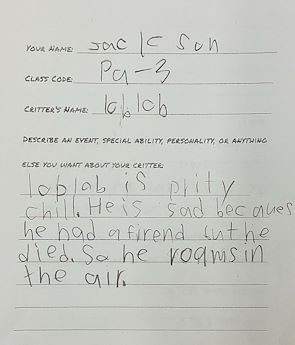 YOUR NAME: Jack Son
CLASS CODE: Pa-3
CRITTER'S NAME: loblob
DESCRIBE AN EVENT, SPECIAL ABILITY, PERSONALITY, OR ANYTHING
ELSE YOU WANT ABOUT YOUR CRITTER:
loblob is prity
chill. He is sad becaues
he had a firend but he
died. So he roams in
the air.